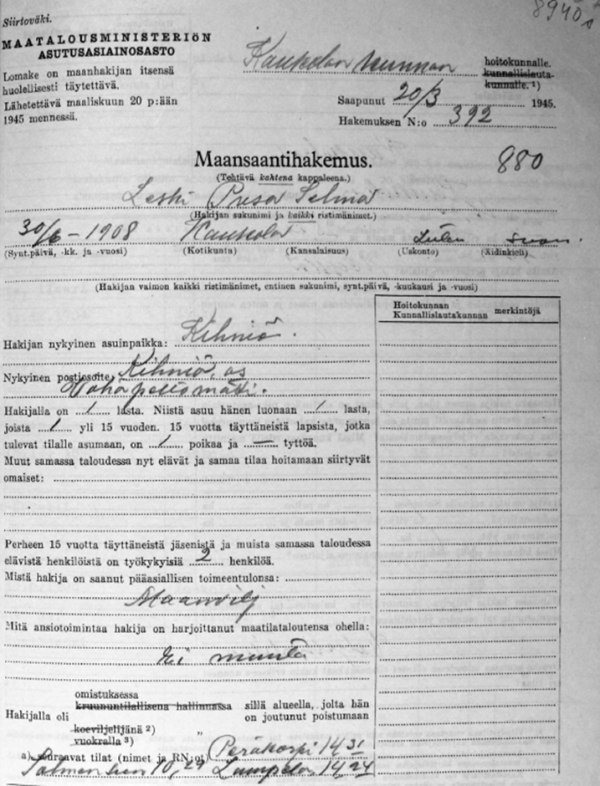 Siirtoväki.
8940
MAATALOUSMINISTERIÖN
ASUTUSASIAINOSASTO
Kaukolan kunnan
hoitokunnalle.
kunnallislauta-
kunnalle. ¹)
Lomake on maanhakijan itsensä
huolellisesti täytettävä.
Lähetettävä maaliskuun 20 p:ään
1945 mennessä.
Saapunut 20/3 1945.
Hakemuksen N:o 392
Maansaantihakemus.
880
(Tehtävä kahtena kappaleena.)
Leski Pusa Selma
(Hakijan sukunimi ja kaikki ristimänimet.)
30/6-1908 Kaukola Luter. suom.
(Synt.päivä, -kk. ja -vuosi) (Kotikunta) (Kansalaisuus) (Uskonto) (Äidinkieli)
(Hakijan vaimon kaikki ristimänimet, entinen sukunimi, synt.päivä, -kuukausi ja -vuosi)
Hoitokunnan
Kunnallislautakunnan merkintöjä
Hakijan nykyinen asuinpaikka: Kihniö.
Nykyinen postiosoite: Kihniö, as
Hakijalla on 1 lasta. Niistä asuu hänen luonaan 1 lasta,
joista 1 yli 15 vuoden. 15 vuotta täyttäneistä lapsista, jotka
tulevat tilalle asumaan, on 1 poikaa ja — tyttöä.
Muut samassa taloudessa nyt elävät ja samaa tilaa hoitamaan siirtyvät
omaiset:
Perheen 15 vuotta täyttäneistä jäsenistä ja muista samassa taloudessa
elävistä henkilöistä on työkykyisiä 2 henkilöä.
Mistä hakija on saanut pääasiallisen toimeentulonsa:
Maanvilj
Mitä ansiotoimintaa hakija on harjoittanut maatilataloutensa ohella:
Ei muuta
omistuksessa
kruununtilallisena hallinnassa
Hakijalla oli koeviljelijänä ²) " sillä alueella, jolta hän
vuokralla ³) on joutunut poistumaan
a) seuraavat tilat (nimet ja RN:ot) Peräkorpi 14 31
10,29 Lampela 14 24